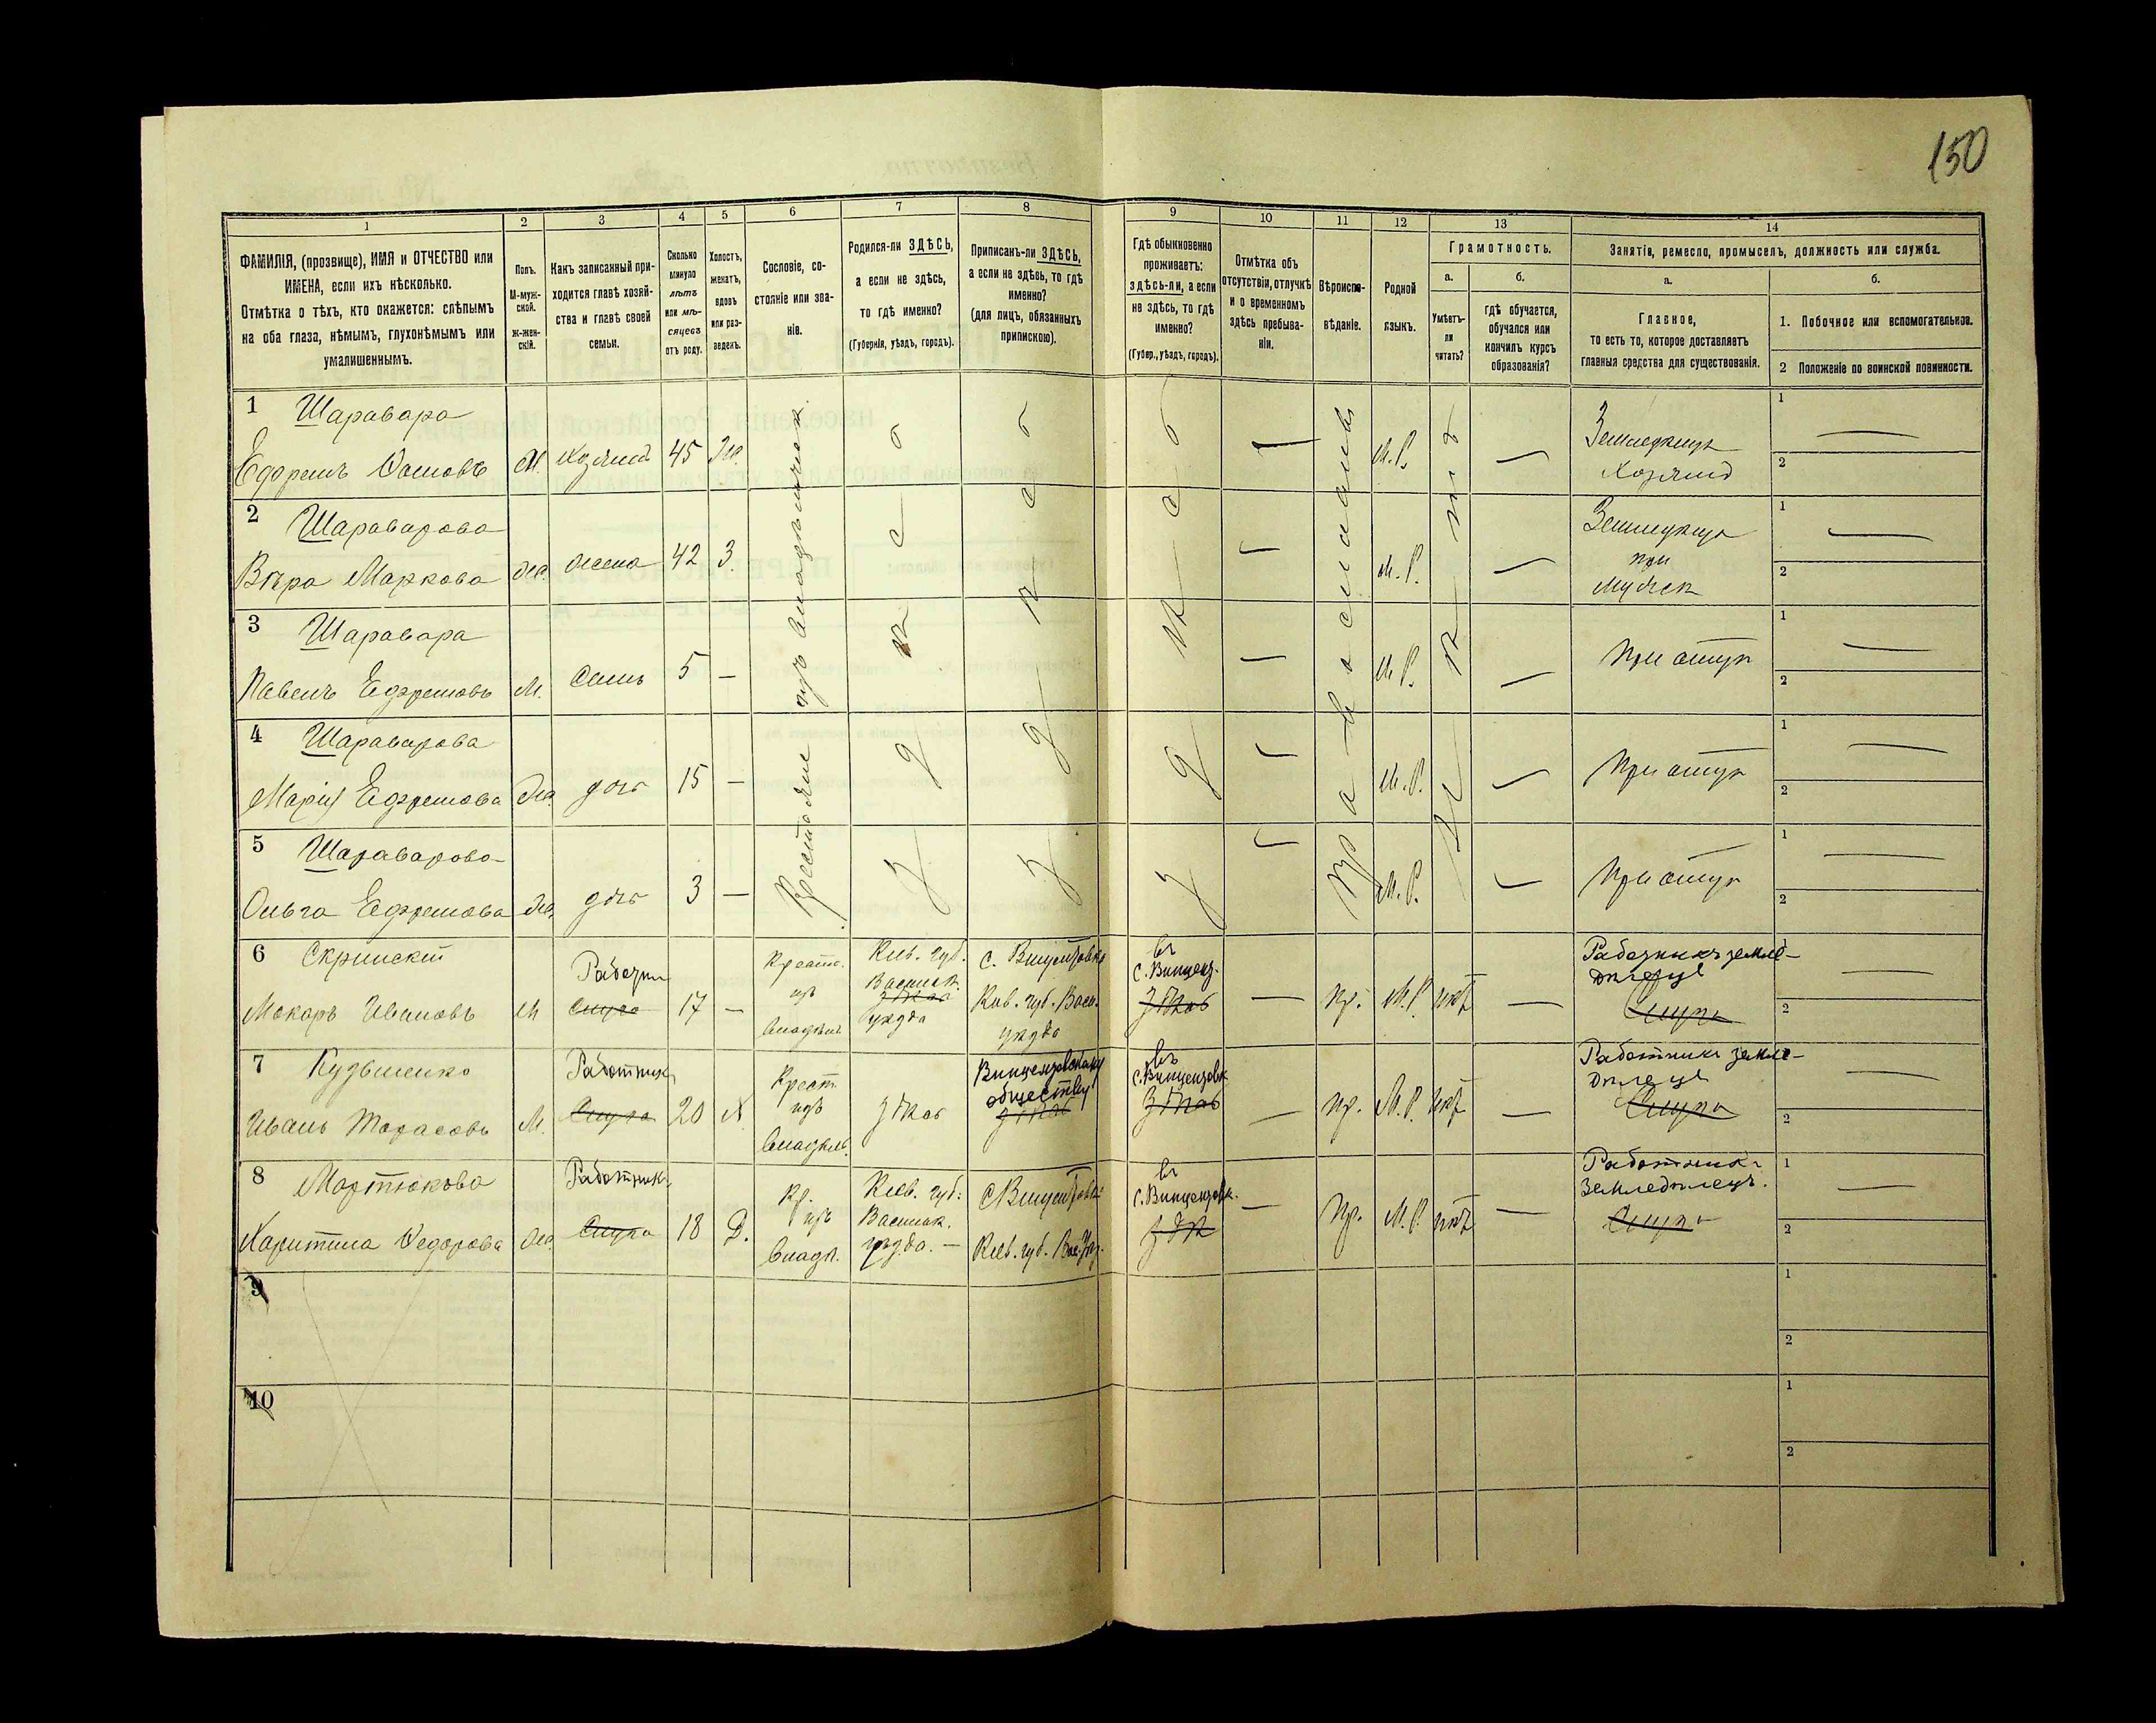 150
1 2 3 4 5 6 7 8 9 10 11 12 13 14
ФАМИЛІЯ, (прозвище), ИМЯ и ОТЧЕСТВО или
ИМЕНА, если ихъ нѣсколько.
Отмѣтка о тѣхъ, кто окажется: слѣпымъ
на оба глаза, нѣмымъ, глухонѣмымъ или
умалишеннымъ.
Полъ.
М-муж-
ской.
Ж-жен-
скій.
Какъ записанный при-
ходится главѣ хозяй-
ства и главѣ своей
семьи.
Сколько
минуло
лѣтъ
или мѣ-
сяцевъ
отъ роду.
Холостъ,
женатъ,
вдовъ
или раз-
веденъ.
Сословіе, со-
стояніе или зва-
ніе.
Родился-ли ЗДѢСЬ,
а если не здѣсь,
то гдѣ именно?
(Губернія, уѣздъ, городъ).
Приписанъ-ли ЗДѢСЬ,
а если не здѣсь, то гдѣ
именно?
(для лицъ, обязанныхъ
припискою).
Гдѣ обыкновенно
проживаетъ:
здѣсь-ли, а если
не здѣсь, то гдѣ
именно?
(Губер., уѣздъ, городъ).
Отмѣтка объ
отсутствіи, отлучкѣ
и о временномъ
здѣсь пребыва-
ніи.
Вѣроиспо-
вѣданіе.
Родной
языкъ.
Грамотность.
а.
Умѣетъ-
ли
читать?
б.
гдѣ обучается,
обучался или
кончилъ курсъ
образованія?
Занятіе, ремесло, промыселъ, должность или служба.
а.
Главное,
то есть то, которое доставляетъ
главныя средства для существованія.
б.
1. Побочное или вспомогательное.
2 Положеніе по воинской повинности.
Крестьяне изъ владѣльческ.
здѣсь
здѣсь
здѣсь
Православн
нѣтъ
1 Шаравара
М. Хозяинъ 45 Же. М.Р. Земледѣлецъ
Хозяинъ
1
2
2 Шараварова
Вѣра Маркова Же. жена 42 З. М.Р. Земледѣлец
при
мужѣ
1
2
3 Шаравара
Павелъ Ефремовъ М. сынъ 5 — М.Р. При отцѣ
1
2
4 Шараварова
Марія Ефремова Же. дочь 15 — М.Р. При отцѣ
1
2
5 Шараварова
Ольга Ефремова Же. дочь 3 — М.Р. При отцѣ
1
2
6 Скринскій
Макаръ Ивановъ М Слуга 17 —
Крест.
изъ
владѣль
Кіев. губ.
Васильк.
уѣзда
с. Винцентовка
Кіев. губ. Васи.
уѣзда
въ
с. Винценз.
здѣсь
— Пр. М.Р. нѣт —
Работникъ земле-
дѣлецъ
Слуга
1
2
7 Кузьменко
Иванъ Тарасовъ М. Работник
Слуга 20 Х
Крест.
изъ
владѣль.
здѣсь
Винцентовскому
обществу
здѣсь
въ
с. Винцентовк.
здѣсь
— Пр. М.Р. нѣт —
Работникъ земле-
дѣлецъ
Слуга
1
2
8 Мартюкова
Харитина Федорова Же. Работник
Слуга 18 Д.
Кр.
изъ
владѣл.
Кіев. губ.
Васильк.
уѣзда. —
с. Винцентовк.
Кіев. губ. Вас. Уѣз.
въ
с. Винцентовк.
здѣс
— Пр. М.Р. нѣт —
Работник
Земледѣлецъ.
Слуга
1
2
9
1
2
10
1
2